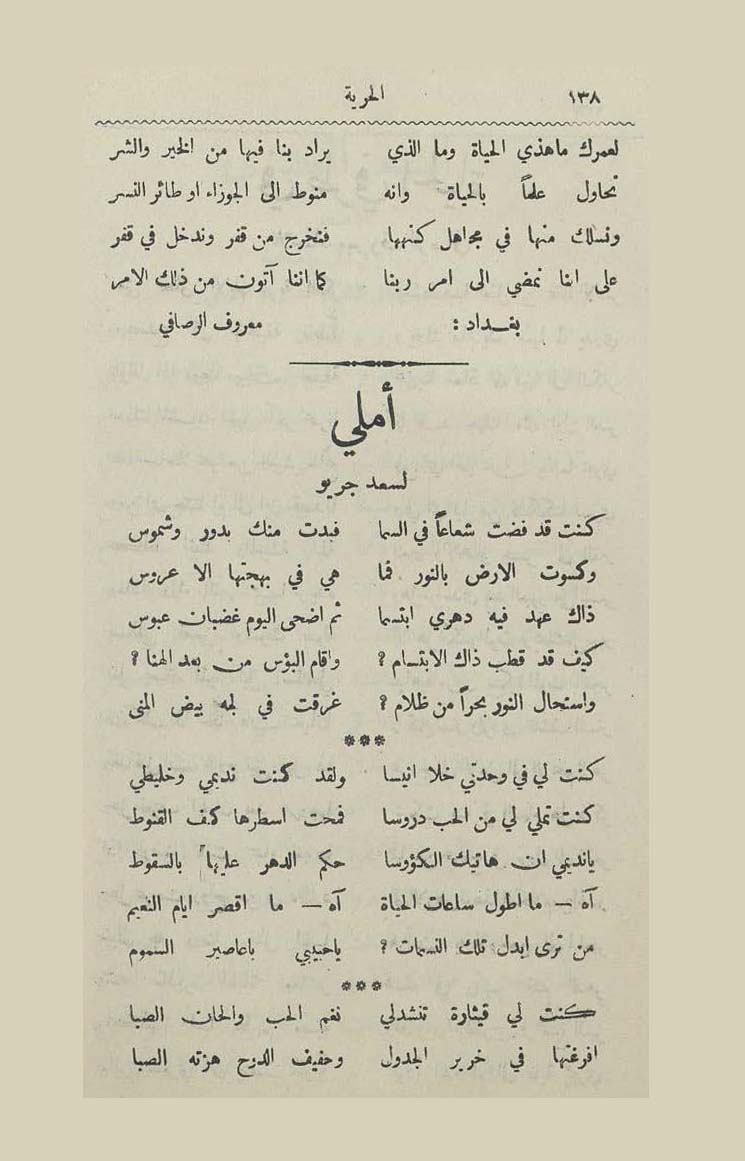 ١٣٨ الحرية
لعمرك ماهذي الحياة وما الذي يراد بنا فيها من الخير والشر
نحاول علماً بالحياة وانه منوط الى الجوزاء او طائر النسر
ونسلك منها في مجاهل كنهها فنخرج من قفر وندخل في قفر
على اننا نمضي الى امر ربنا كما اننا آتون من ذلك الامر
بغداد : معروف الرصافي
أملي
لسعد جريو
كنت قد فضت شعاعاً في السما فبدت منك بدور وشموس
وكسوت الارض بالنور فما هي في بهجتها الا عروس
ذاك عهد فيه دهري ابتسما ثم اضحى اليوم غضبان عبوس
كيف قد قطب ذاك الابتسام ؟ واقام البؤس من بعد الهنا ؟
واستحال النور بحراً من ظلام ؟ غرقت في لجه بيض المنى
***
كنت لي في وحدتي خلا انيسا ولقد كنت نديمي وخليطي
كنت تملي لي من الحب دروسا فمحت اسطرها كف القنوط
يانديمي ان هاتيك الكؤوسا حكم الدهر عليها بالسقوط
آه — ما اطول ساعات الحياة آه — ما اقصر ايام النعيم
من ترى ابدل تلك النسمات ؟ ياحبيبي باعاصير السموم
***
كنت لي قيثارة تنشدلي نغم الحب والحان الصبا
افرغتها في خرير الجدول وحفيف الدوح هزته الصبا